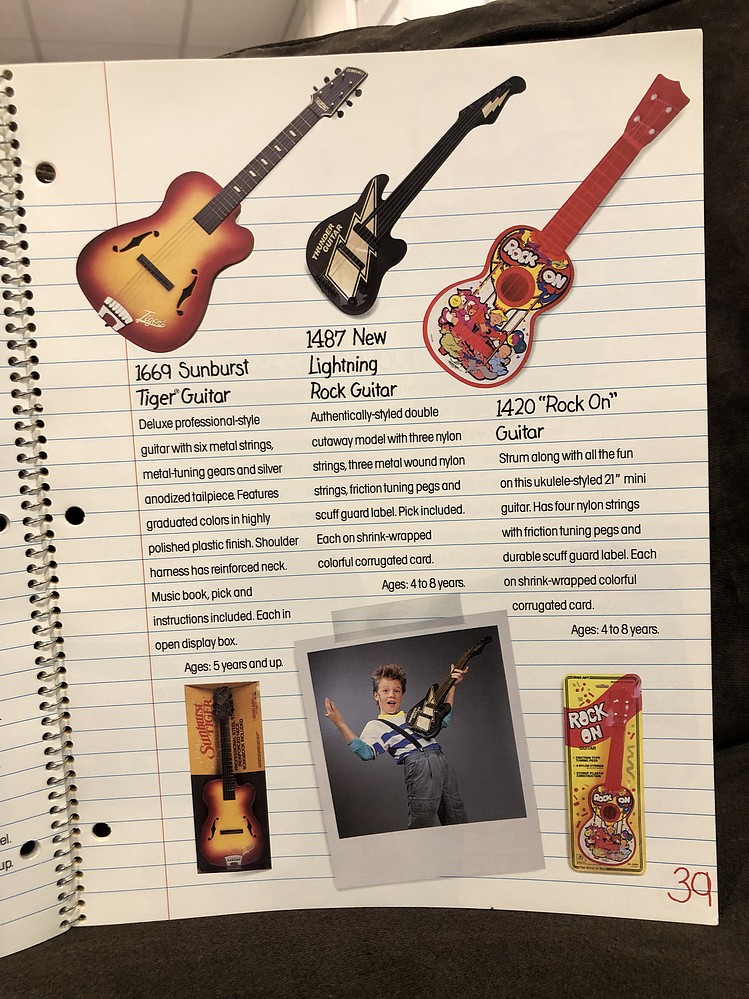 THUNDER
GUITAR
Tiger
ROCK
ON
1669 Sunburst
Tiger® Guitar
Deluxe professional-style
guitar with six metal strings,
metal-tuning gears and silver
anodized tailpiece. Features
graduated colors in highly
polished plastic finish. Shoulder
harness has reinforced neck.
Music book, pick and
instructions included. Each in
open display box.
Ages: 5 years and up.
1487 New
Lightning
Rock Guitar
Authentically-styled double
cutaway model with three nylon
strings, three metal wound nylon
strings, friction tuning pegs and
scuff guard label. Pick included.
Each on shrink-wrapped
colorful corrugated card.
Ages: 4 to 8 years.
1420 "Rock On"
Guitar
Strum along with all the fun
on this ukulele-styled 21" mini
guitar. Has four nylon strings
with friction tuning pegs and
durable scuff guard label. Each
on shrink-wrapped colorful
corrugated card.
Ages: 4 to 8 years.
Sunburst
TIGER
ROCK
ON
GUITAR
ROCK ON
el.
up.
39